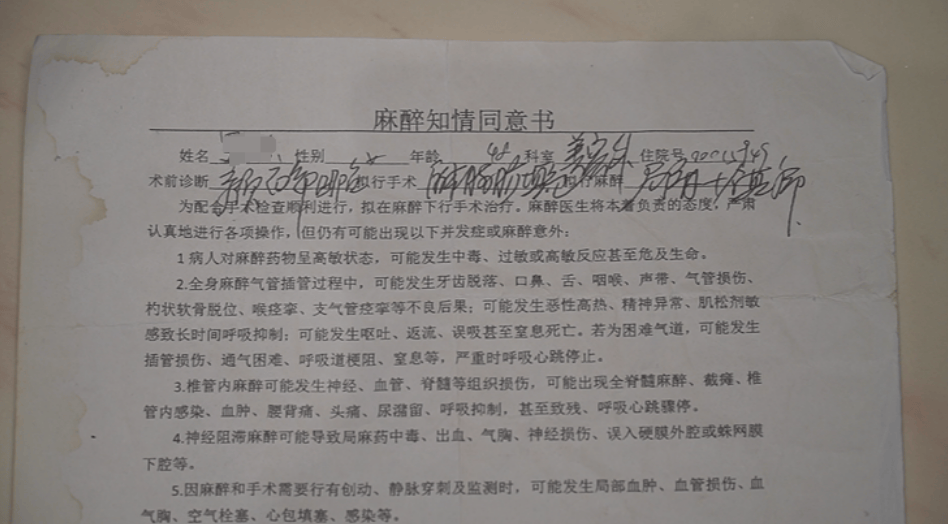 麻醉知情同意书
姓名 性别 女 年龄 48 科室 普外科 住院号
术前诊断 拟行手术 拟行麻醉
为配合手术检查顺利进行，拟在麻醉下行手术治疗。麻醉医生将本着负责的态度，严肃
认真地进行各项操作，但仍有可能出现以下并发症或麻醉意外：
1 病人对麻醉药物呈高敏状态，可能发生中毒、过敏或高敏反应甚至危及生命。
2.全身麻醉气管插管过程中，可能发生牙齿脱落、口鼻、舌、咽喉、声带、气管损伤、
杓状软骨脱位、喉痉挛、支气管痉挛等不良后果；可能发生恶性高热、精神异常、肌松剂敏
感致长时间呼吸抑制；可能发生呕吐、返流、误吸甚至窒息死亡。若为困难气道，可能发生
插管损伤、通气困难、呼吸道梗阻、窒息等，严重时呼吸心跳停止。
3.椎管内麻醉可能发生神经、血管、脊髓等组织损伤，可能出现全脊髓麻醉、截瘫、椎
管内感染、血肿、腰背痛、头痛、尿潴留、呼吸抑制，甚至致残、呼吸心跳骤停。
4.神经阻滞麻醉可能导致局麻药中毒、出血、气胸、神经损伤、误入硬膜外腔或蛛网膜
下腔等。
5.因麻醉和手术需要行有创动、静脉穿刺及监测时，可能发生局部血肿、血管损伤、血
气胸、空气栓塞、心包填塞、感染等。